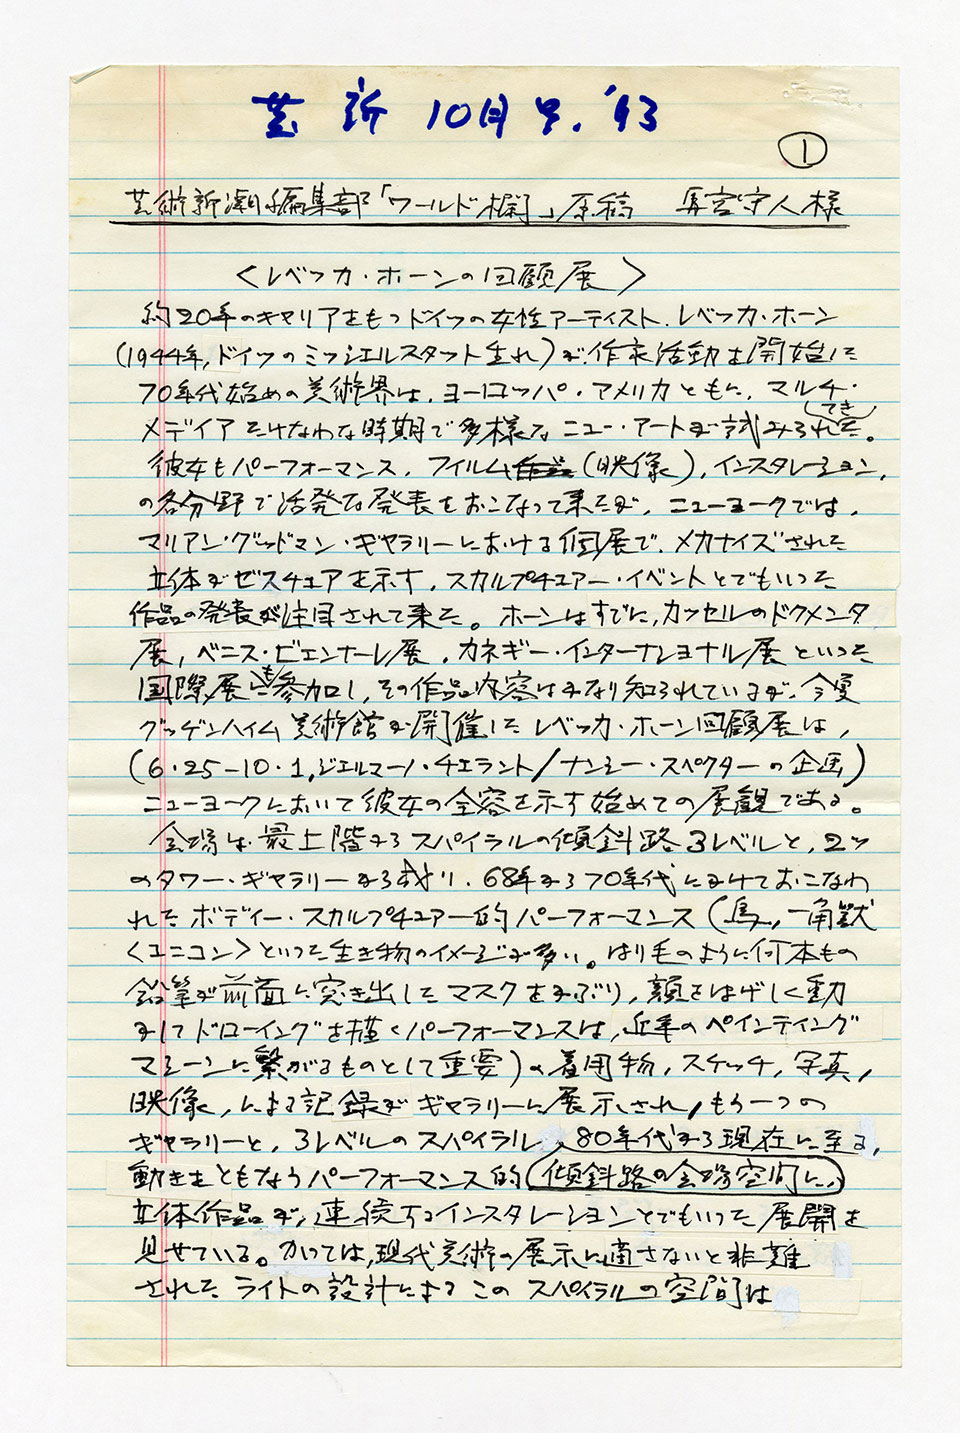 芸新 10月号. '93
①
芸術新潮編集部「ワールド欄」原稿 馬宮守人様
〈レベッカ・ホーンの回顧展〉
約20年のキャリアをもつドイツの女性アーティスト、レベッカ・ホーン
(1944年,ドイツのミッシェルスタット生れ)が、作家活動を開始した
70年代始めの美術界は、ヨーロッパ・アメリカともに、マルチ・
メディアたけなわな時期で多様なニュー・アートが試みられてきた。
彼女もパーフォーマンス、フイルム(映像)、インスタレーション、
の各分野で活発な発表をおこなって来たが、ニューヨークでは、
マリアン・グッドマン・ギャラリーにおける個展で、メカナイズされた
立体がゼスチュアを示す、スカルプチュアー・イベントとでもいった
作品の発表が注目されて来た。ホーンはすでに、カッセルのドクメンタ
展、ベニス・ビエンナーレ展、カネギー・インターナショナル展といった
国際展にも参加し、その作品内容はかなり知られているが、今夏
グッゲンハイム美術館が開催したレベッカ・ホーン回顧展は、
(6・25–10・1,ジェルマーノ・チェラント/ナンシー・スペクターの企画)
ニューヨークにおいて彼女の全容を示す始めての展観である。
会場は、最上階からスパイラルの傾斜路3レベルと、2ツ
のタワー・ギャラリーから成り、68年から70年代にかけておこなわ
れたボディー・スカルプチュアー的パーフォーマンス(鳥、一角獣
〈ユニコン〉といった生き物のイメージが多い。はり毛のように何本もの
鉛筆が前面に突き出したマスクをかぶり、顔をはげしく動
かしてドローイングを描くパーフォーマンスは、近年のペインティング
マシーンに繋がるものとして重要)の着用物、スケッチ、写真、
映像、による記録がギャラリーに展示され、もう一つの
ギャラリーと、3レベルのスパイラル、80年代から現在に至る、
動きをともなうパーフォーマンス的傾斜路の会場空間に、
立体作品が、連続するインスタレーションとでもいった展開を
見せている。かつては、現代美術の展示に適さないと非難
されたライトの設計によるこのスパイラルの空間は